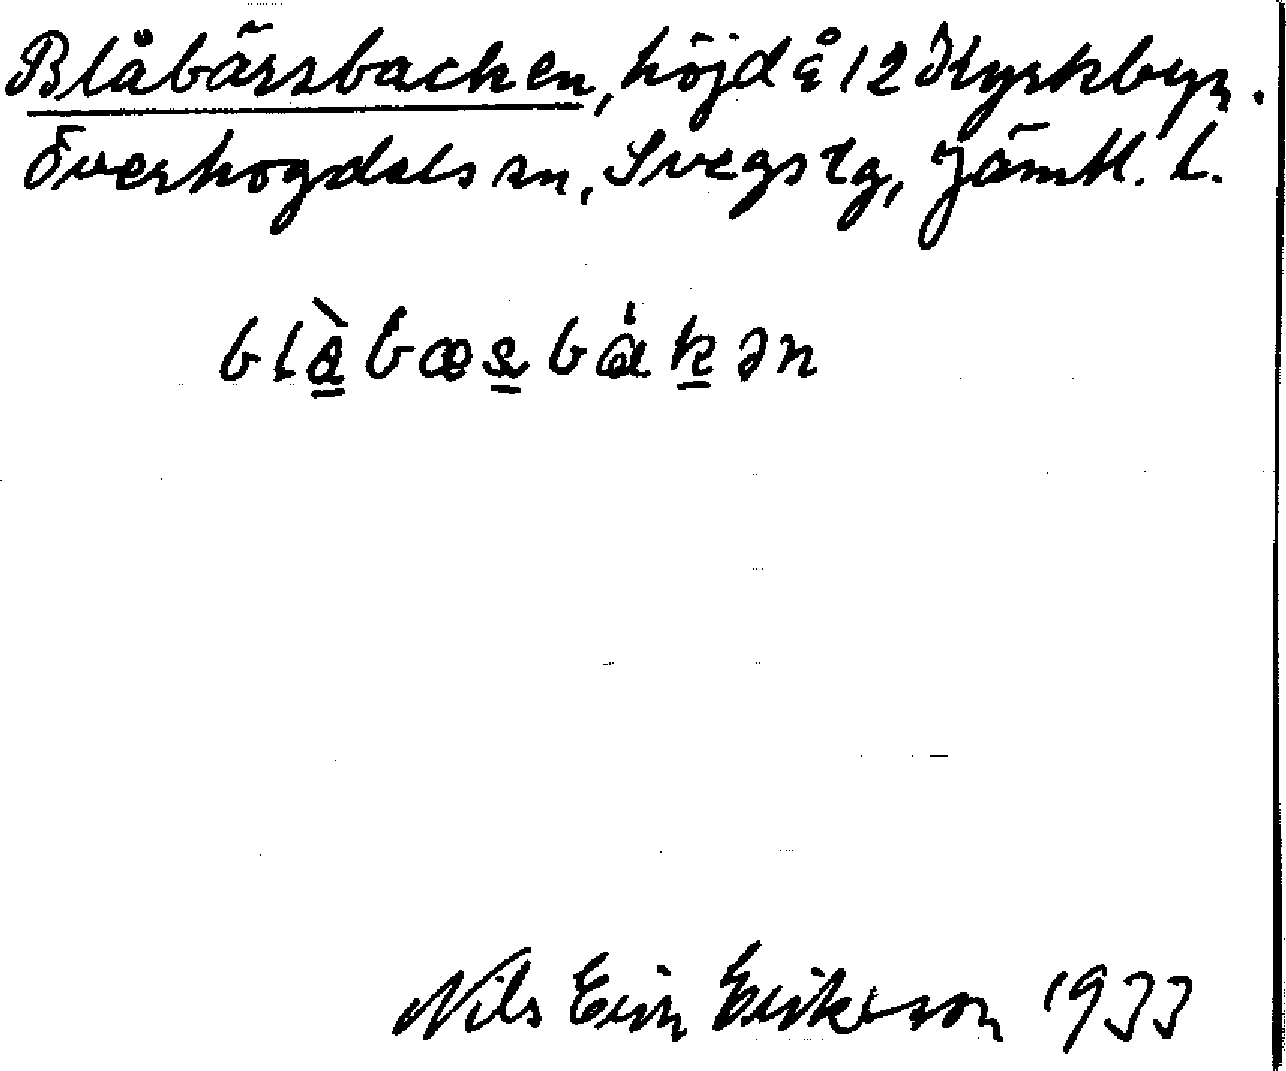 Blåbärsbacken, höjd å 12 Kyrkbyn.
Överhogdals sn, Svegs tg, Jämtl. l.
blàbæsbákən
Nils Eric Erikson 1933